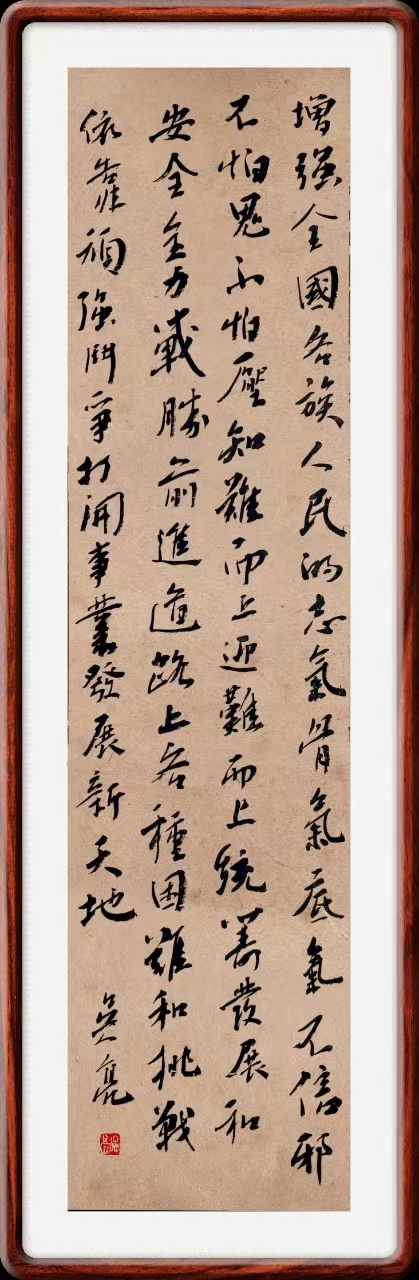 增强全國各族人民的志氣骨氣底氣不信邪
不怕鬼不怕壓知難而上迎難而上統籌發展和
安全全力戰勝前進道路上各種困難和挑戰
依靠頑強鬥爭打開事業發展新天地
亮